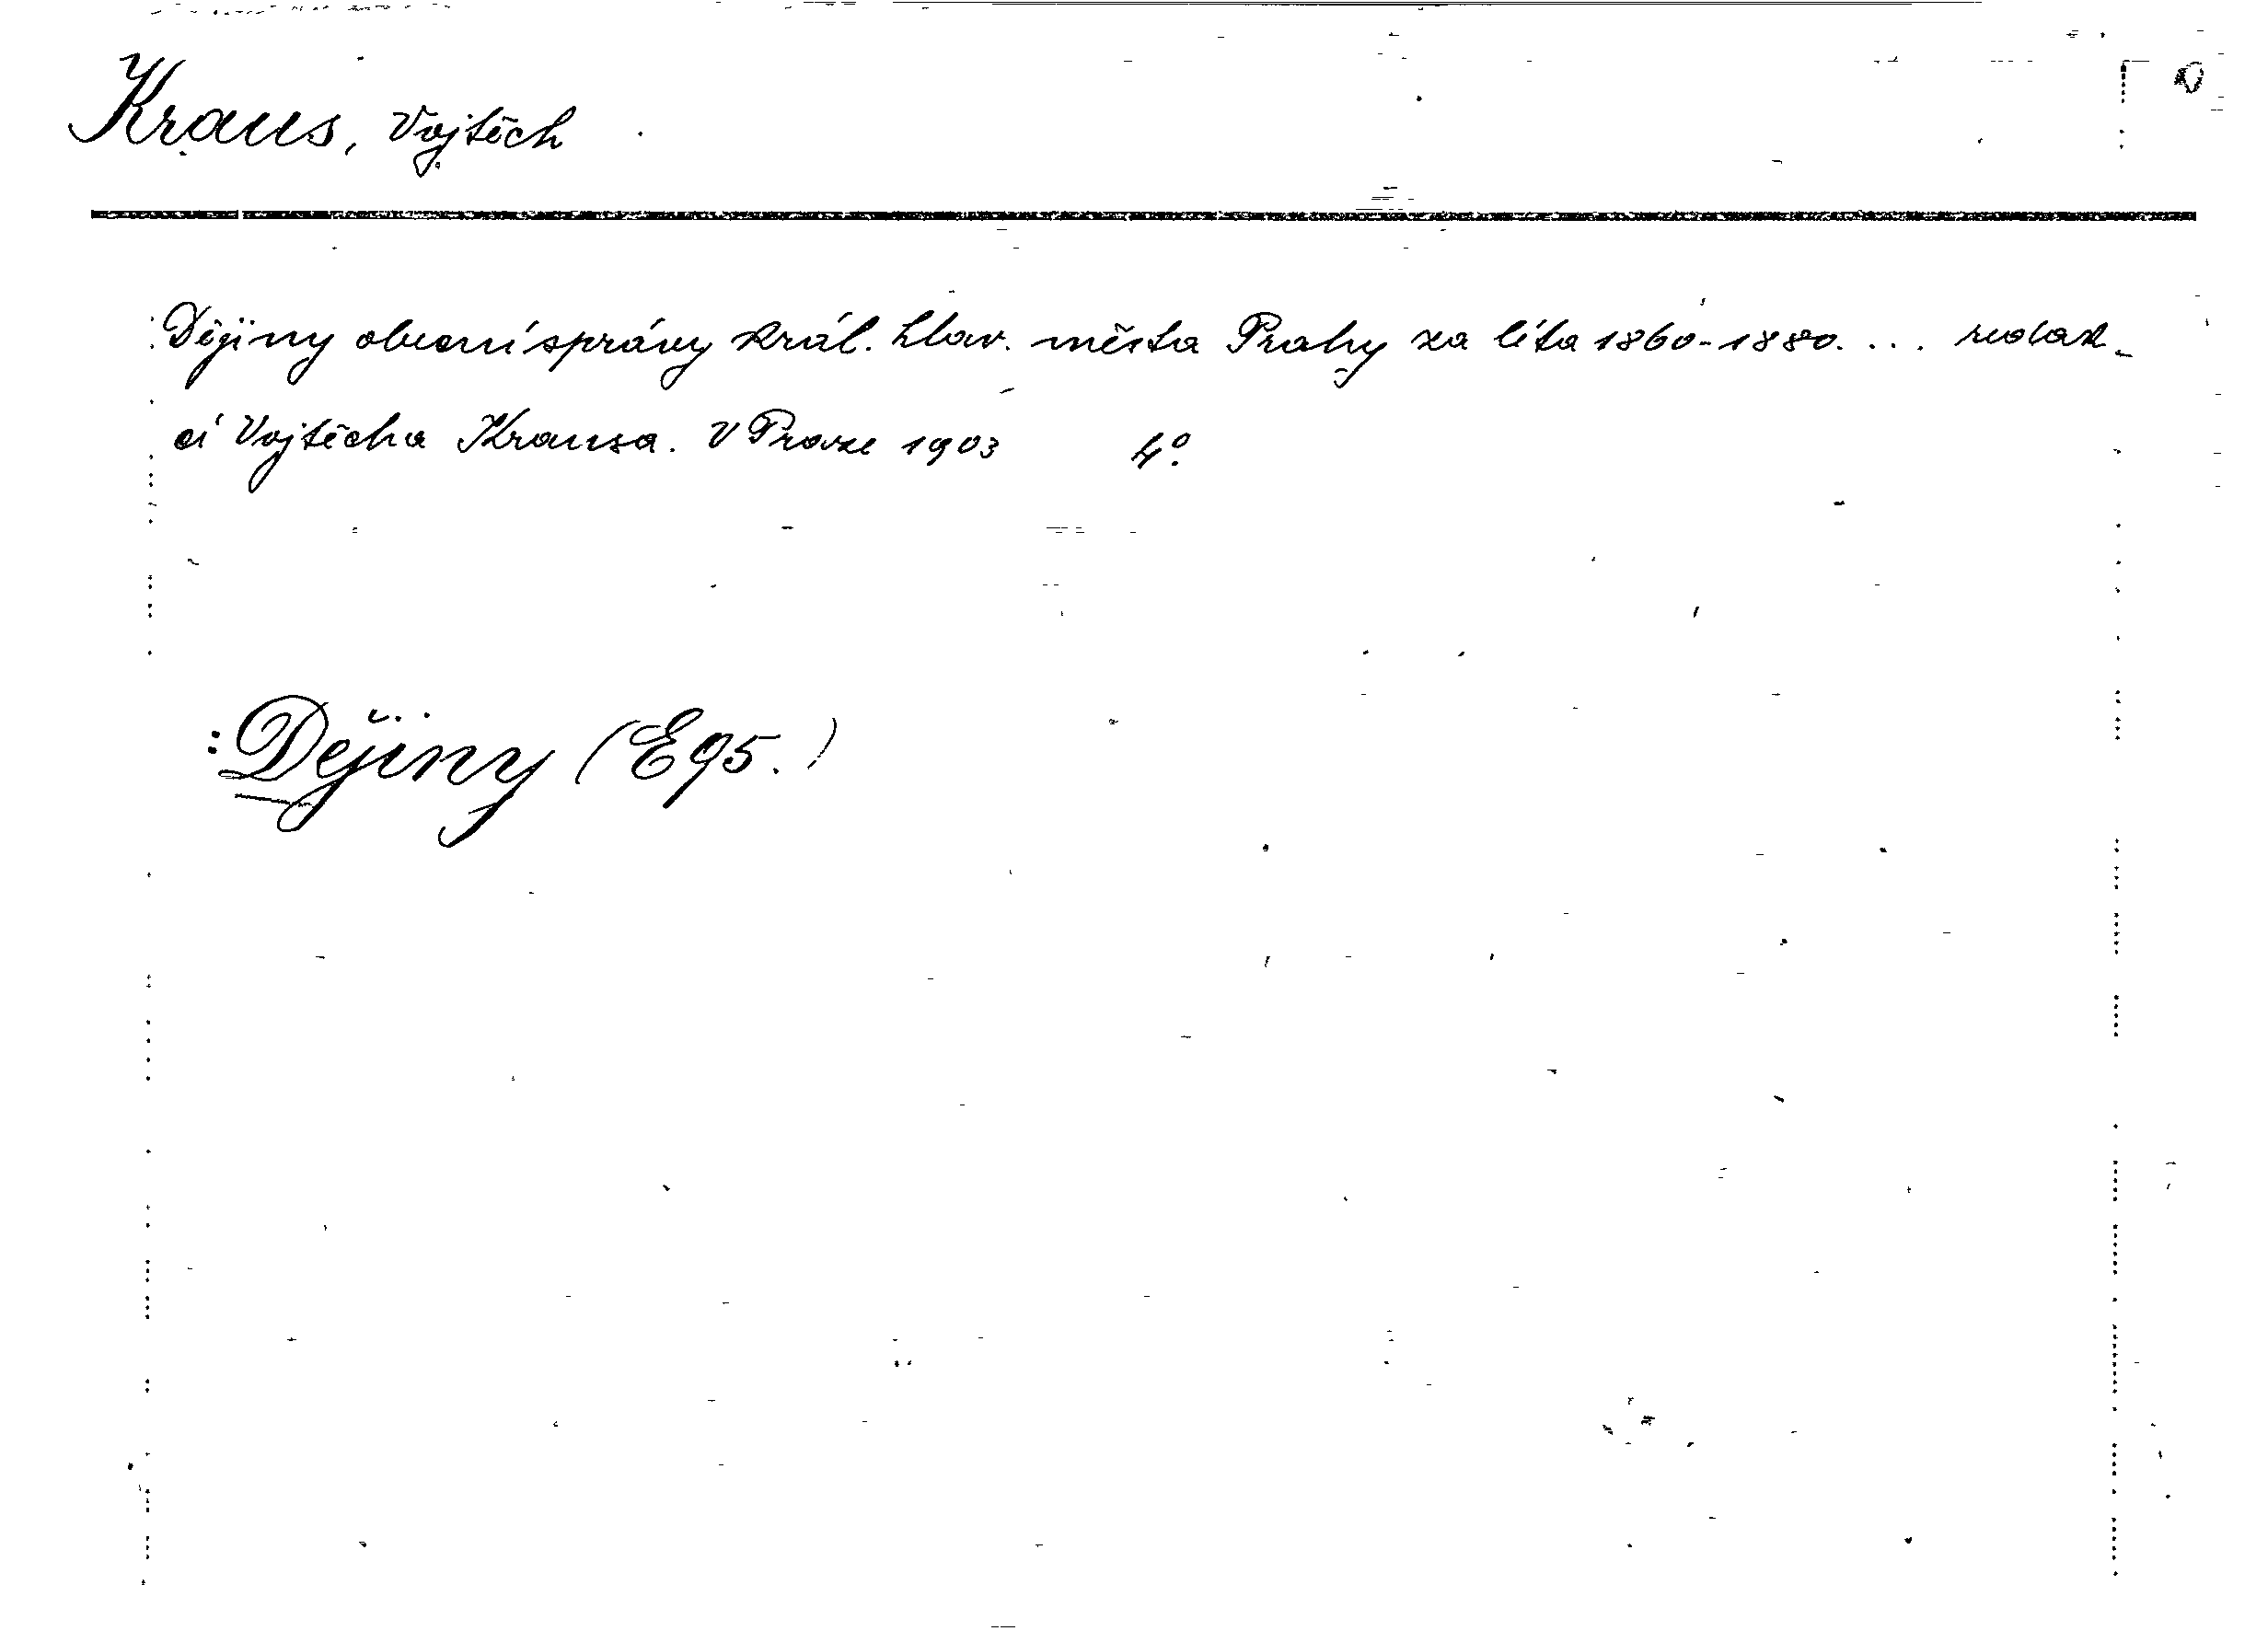 Kraus, Vojtěch
Dějiny obecní správy král. hlav. města Prahy za léta 1860-1880. ... redak-
cí Vojtěcha Krausa. V Praze 1903 4°.
: Dějiny (E95.)